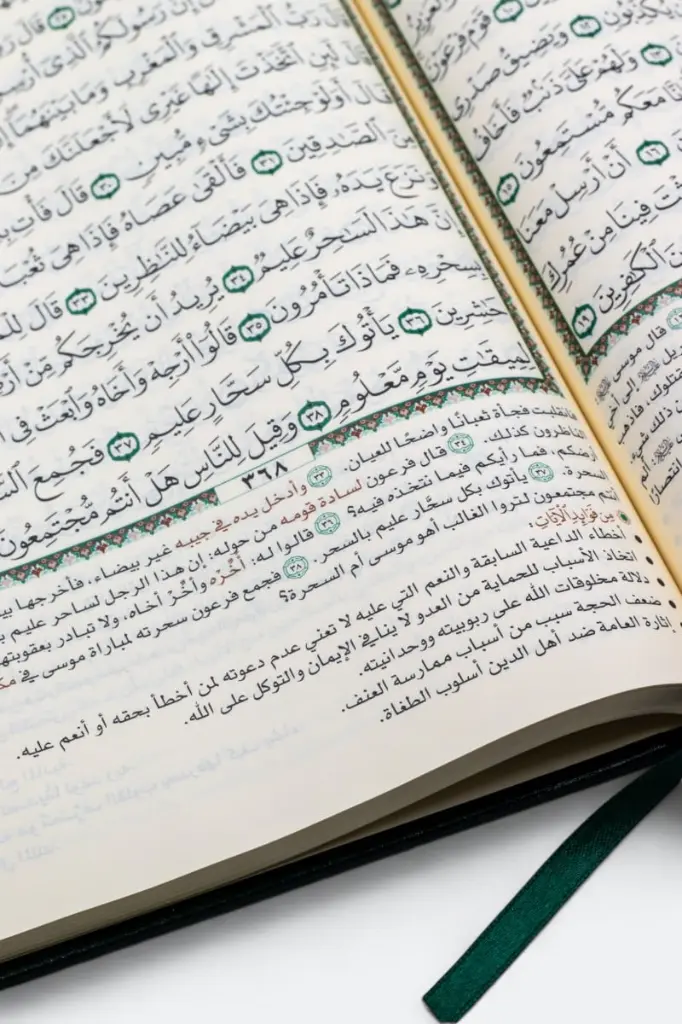 قَوْمَ فِرْعَوْنَ
يُكَذِّبُونِ ١٢ وَيَضِيقُ صَدْرِى
١٣ وَلَهُمْ عَلَىَّ ذَنۢبٌ فَأَخَافُ
مَعَكُم مُّسْتَمِعُونَ ١٥
١٦ أَنْ أَرْسِلْ مَعَنَا
فِينَا مِنْ عُمُرِكَ
ٱلْكَٰفِرِينَ ١٩
قال موسى
إلى أخي
فاذهب
ذلك شيء
ألم
إِنَّ رَسُولَكُمُ ٱلَّذِىٓ
رَبُّ ٱلْمَشْرِقِ وَٱلْمَغْرِبِ وَمَا بَيْنَهُمَآ
قَالَ لَئِنِ ٱتَّخَذْتَ إِلَٰهًا غَيْرِى لَأَجْعَلَنَّكَ مِنَ
قَالَ أَوَلَوْ جِئْتُكَ بِشَىْءٍ مُّبِينٍ ٣٠ قَالَ فَأْتِ
مِنَ ٱلصَّٰدِقِينَ ٣١ فَأَلْقَىٰ عَصَاهُ فَإِذَا هِىَ ثُعْبَا
وَنَزَعَ يَدَهُۥ فَإِذَا هِىَ بَيْضَآءُ لِلنَّٰظِرِينَ ٣٣ قَالَ لِلْ
إِنَّ هَٰذَا لَسَٰحِرٌ عَلِيمٌ ٣٤ يُرِيدُ أَن يُخْرِجَكُم مِّنْ أَرْ
بِسِحْرِهِۦ فَمَاذَا تَأْمُرُونَ ٣٥ قَالُوٓا۟ أَرْجِهْ وَأَخَاهُ وَٱبْعَثْ فِى ٱ
حَٰشِرِينَ ٣٦ يَأْتُوكَ بِكُلِّ سَحَّارٍ عَلِيمٍ ٣٧ فَجُمِعَ ٱلسَّ
لِمِيقَٰتِ يَوْمٍ مَّعْلُومٍ ٣٨ وَقِيلَ لِلنَّاسِ هَلْ أَنتُم مُّجْتَمِعُونَ
٣٦٨
فانقلبت فجأة ثعبانًا واضحًا للعيان. ٣٣ وأدخل يده في جيبه غير بيضاء، فأخرجها
الناظرون كذلك. ٣٤ قال فرعون لسادة قومه من حوله: إن هذا الرجل لساحر عليم
أرضكم، فما رأيكم فيما نتخذه فيه؟ ٣٦ قالوا له: أخّره وأخّرْ أخاه، ولا تبادر بعقوبتهما
السحرة. ٣٧ يأتوك بكل سحَّار عليم بالسحر. ٣٨ فجمع فرعون سحرته لمباراة موسى في
أنتم مجتمعون لتروا الغالب أهو موسى أم السحرة؟
مِن فَوَائِدِ الْآيَاتِ:
• أخطاء الداعية السابقة والنعم التي عليه لا تعني عدم دعوته لمن أخطأ بحقه أو أنعم عليه.
• اتخاذ الأسباب للحماية من العدو لا ينافي الإيمان والتوكل على الله.
• دلالة مخلوقات الله على ربوبيته ووحدانيته.
• ضعف الحجة سبب من أسباب ممارسة العنف.
• إثارة العامة ضد أهل الدين أسلوب الطغاة.